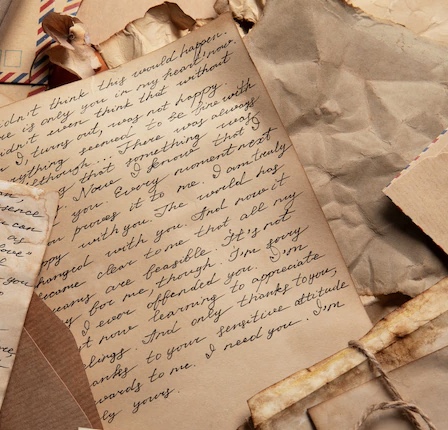 didn't think this would happen.
re is only you in my heart now.
idn't even think that without
I, turns out, was not happy
ything seemed to be fine with
although... There was always
g that something was
g. Now I know that I
you. Every moment next
ou proves it to me. I am truly
ppy with you. The world has
hanged with you. And now it
ecame clear to me that all my
reams are feasible. It's not
y for me, though. I'm sorry
I ever offended you. I'm
t now learning to appreciate
elings. And only thanks to you,
anks to your sensitive attitude
wards to me. I need you. I'm
ly yours.
esence
can
as
love"